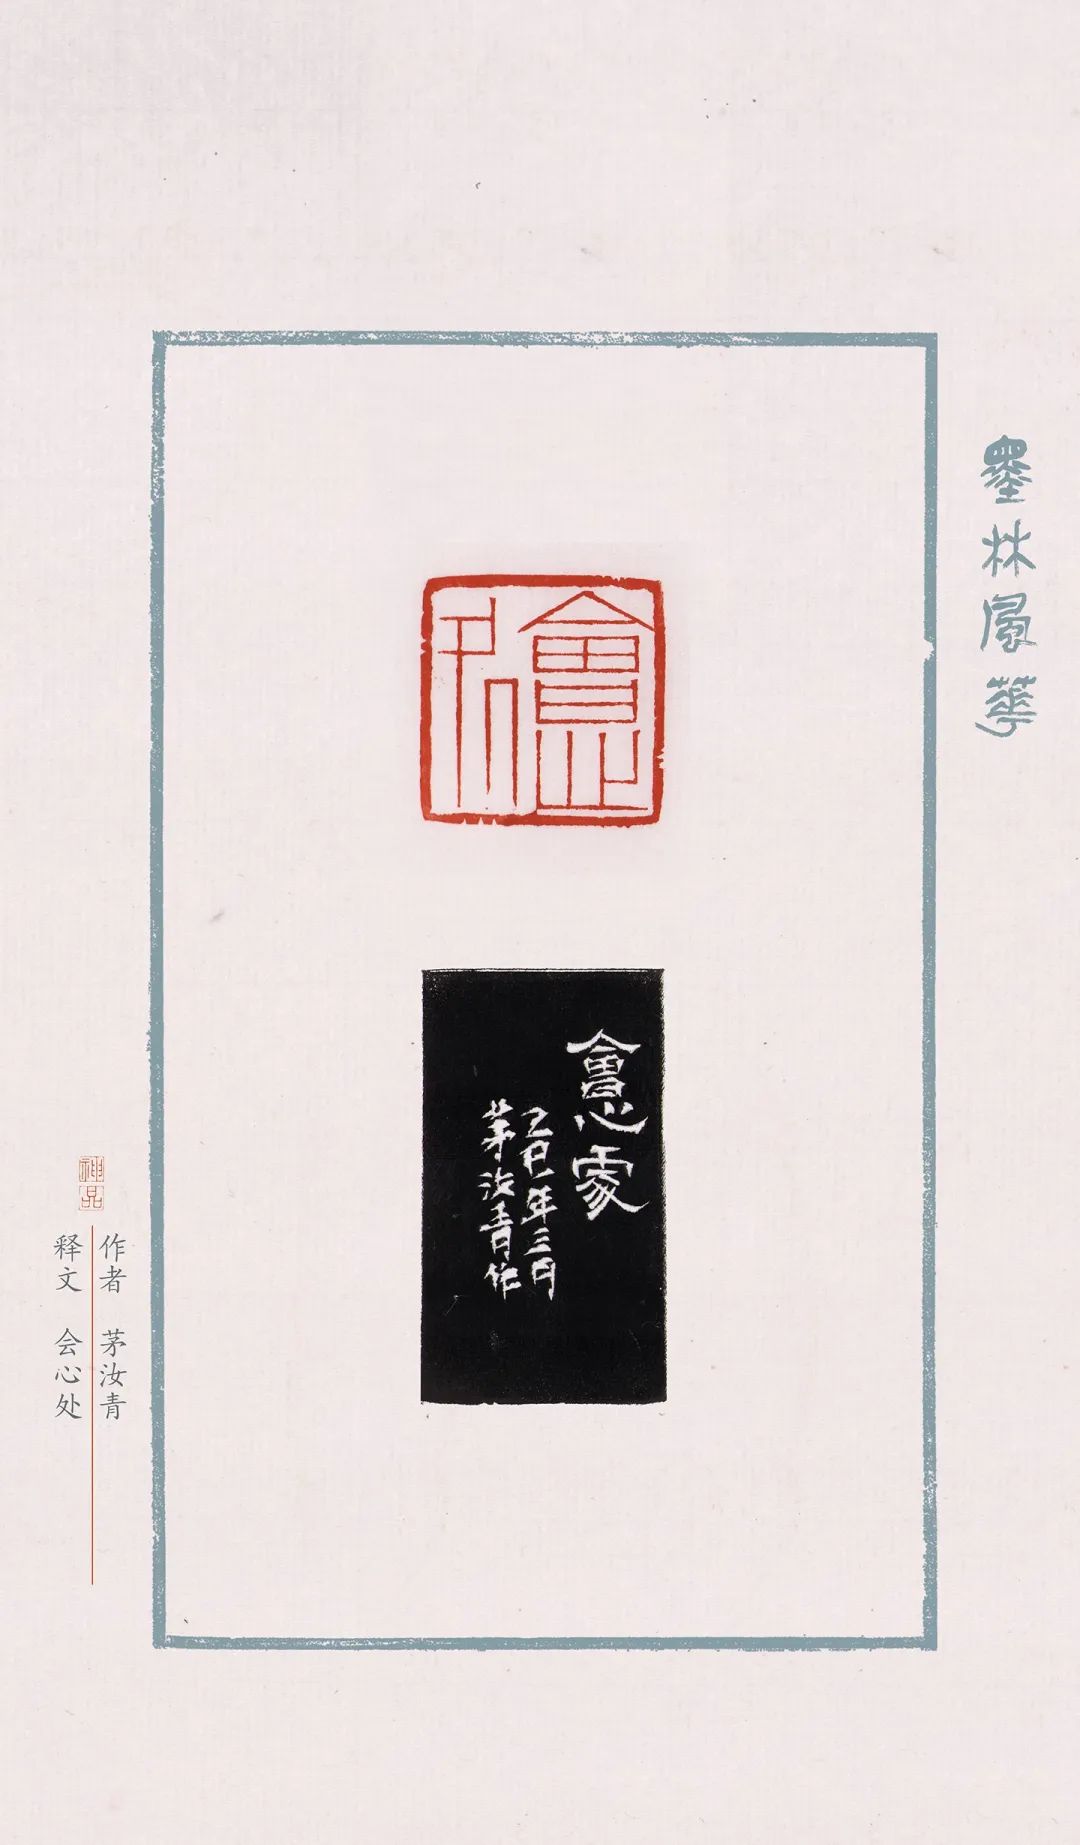 墨林風華
會心處
會心處
乙巳年三月
茅汝青作
神品
作者 茅汝青
释文 会心处